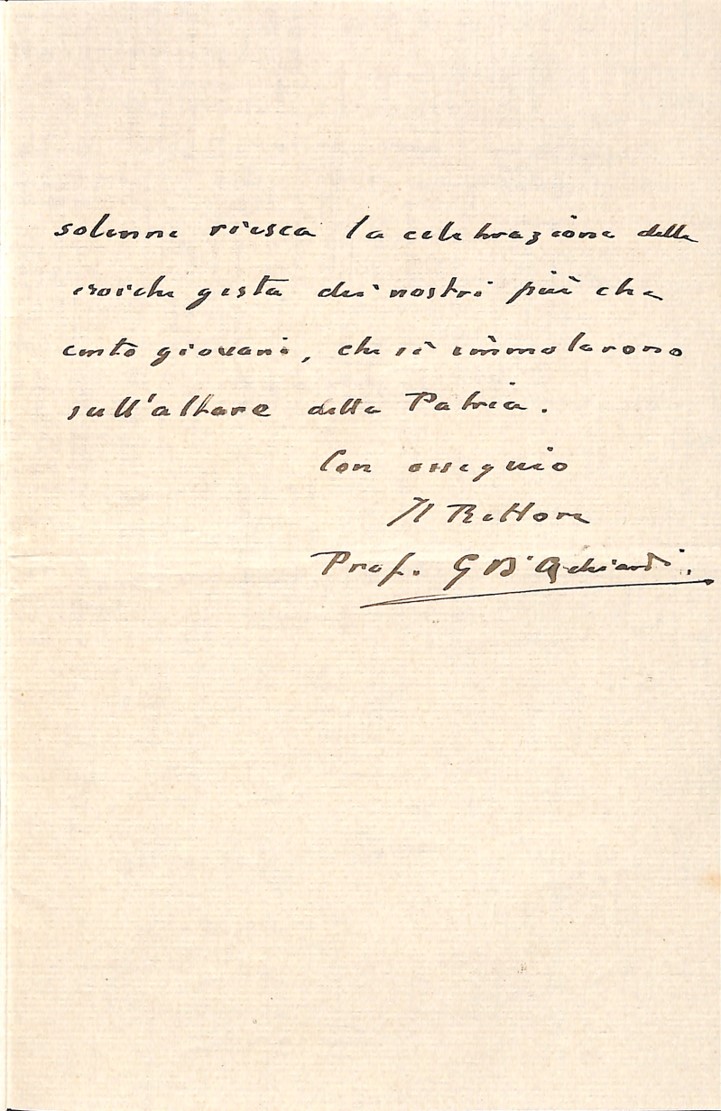 solenne riesca la celebrazione delle
eroiche gesta dei nostri più che
cento giovani, che si immolarono
sull'altare della Patria.
Con ossequio
Il Rettore
Prof. G D'Achiardi.